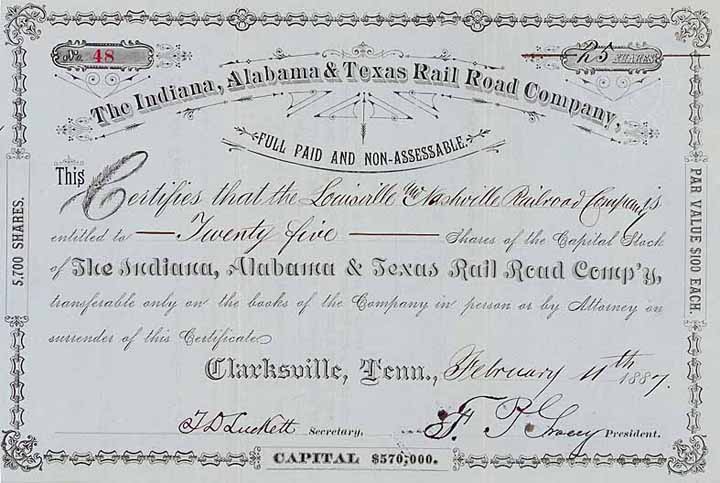 No. 48
25 SHARES
The Indiana, Alabama & Texas Rail Road Company,
FULL PAID AND NON-ASSESSABLE.
This Certifies that the Louisville and Nashville Railroad Company is
entitled to — Twenty five — Shares of the Capital Stock
of The Indiana, Alabama & Texas Rail Road Comp'y,
transferable only on the books of the Company in person or by Attorney on
surrender of this Certificate
Clarksville, Tenn., February 11th 1887.
T D Luckett Secretary. F. P. Gracey President.
CAPITAL $570,000.
5,700 SHARES.
PAR VALUE $100 EACH.